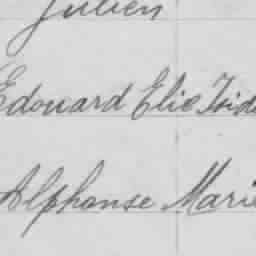 Julien
Edouard Elie Isid
Alphonse Marie